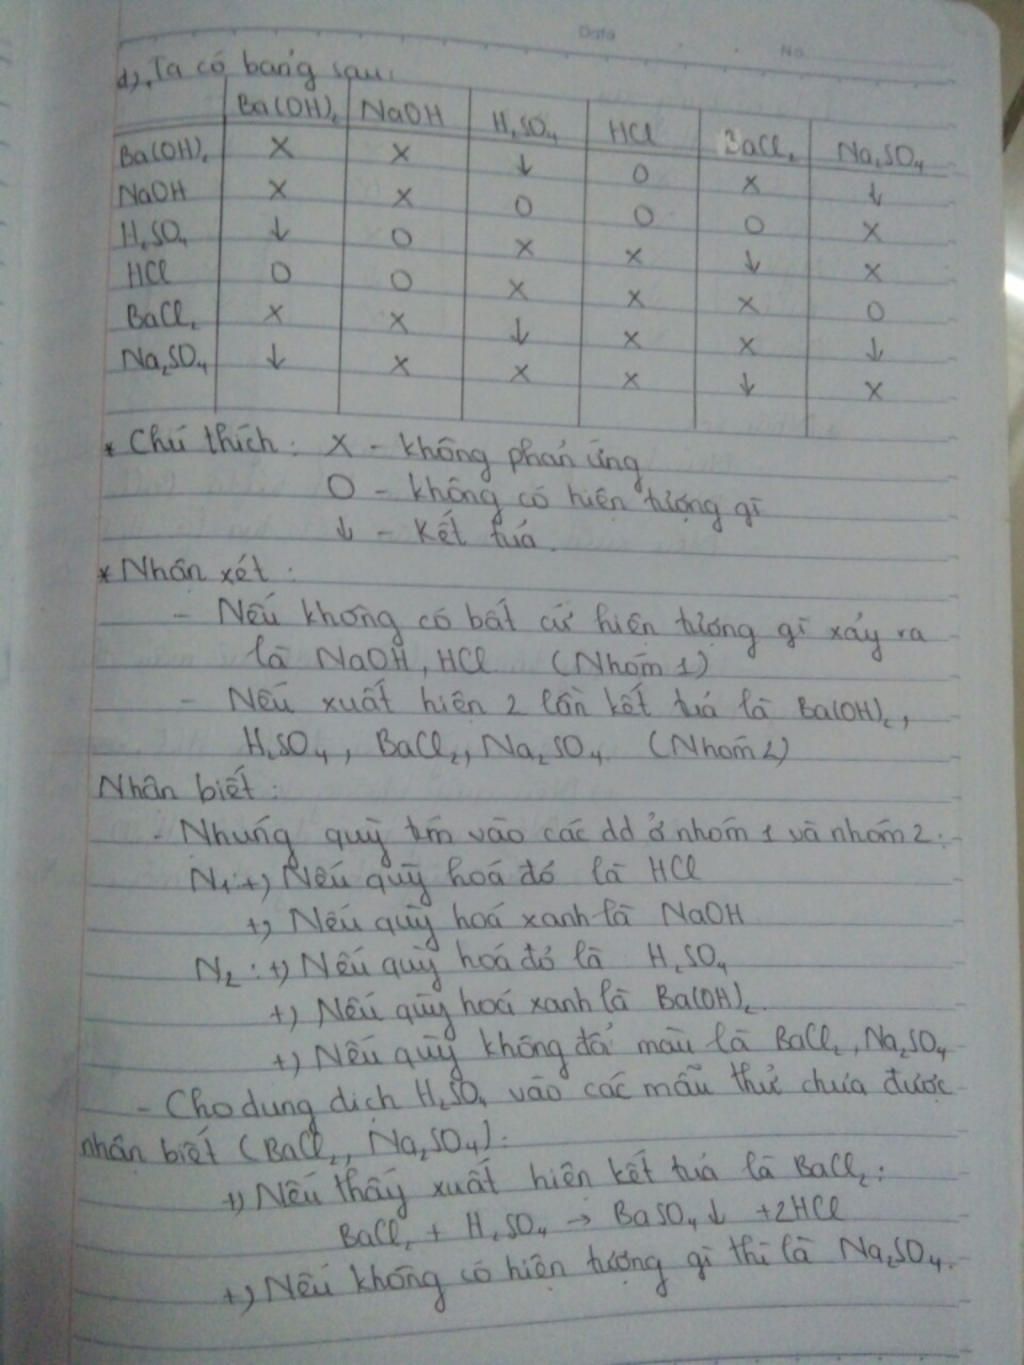 Data
No
d), Ta có bảng sau:
Ba(OH)₂ NaOH H₂SO₄ HCl BaCl₂ Na₂SO₄
Ba(OH)₂ X X ↓ O X ↓
NaOH X X O O O X
H₂SO₄ ↓ O X X ↓ X
HCl O O X X X O
BaCl₂ X X ↓ X X ↓
Na₂SO₄ ↓ X X X ↓ X
* Chú thích: X - không phản ứng
O - không có hiện tượng gì
↓ - kết tủa.
* Nhận xét:
- Nếu không có bất cứ hiện tượng gì xảy ra
là NaOH, HCl (Nhóm 1)
- Nếu xuất hiện 2 lần kết tủa là Ba(OH)₂,
H₂SO₄, BaCl₂, Na₂SO₄. (Nhóm 2)
Nhận biết:
- Nhúng quỳ tím vào các dd ở nhóm 1 và nhóm 2:
N₁: +) Nếu quỳ hoá đỏ là HCl
+) Nếu quỳ hoá xanh là NaOH
N₂: +) Nếu quỳ hoá đỏ là H₂SO₄
+) Nếu quỳ hoá xanh là Ba(OH)₂.
+) Nếu quỳ không đổi màu là BaCl₂, Na₂SO₄
- Cho dung dịch H₂SO₄ vào các mẫu thử chưa được
nhận biết (BaCl₂, Na₂SO₄):
+) Nếu thấy xuất hiện kết tủa là BaCl₂:
BaCl₂ + H₂SO₄ → BaSO₄↓ +2HCl
+) Nếu không có hiện tượng gì thì là Na₂SO₄.